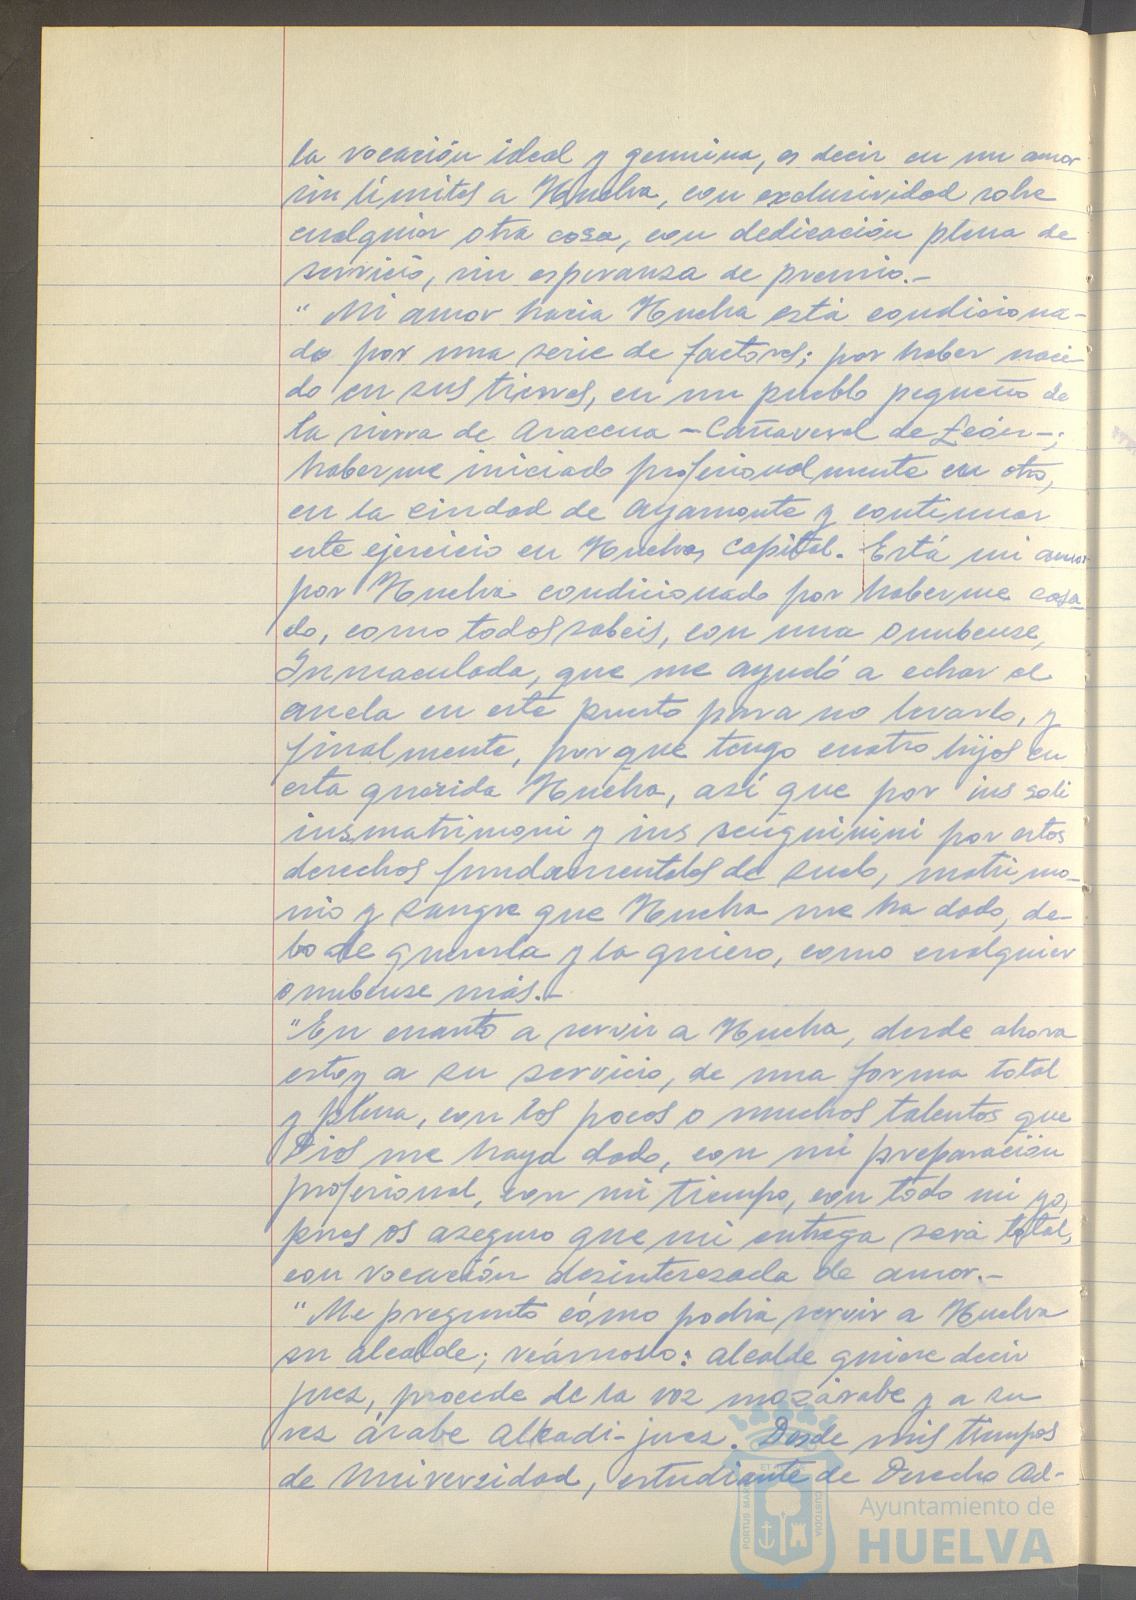 la vocación ideal y genuina, es decir en un amor
sin límites a Huelva, con exclusividad sobre
cualquier otra cosa, con dedicación plena de
servicio, sin esperanza de premio.-
" Mi amor hacia Huelva está condiciona-
do por una serie de factores; por haber naci-
do en sus tierras, en un pueblo pequeño de
la sierra de Aracena -Cañaveral de León-;
haberme iniciado profesionalmente en otro,
en la ciudad de Ayamonte y continuar
este ejercicio en Huelva, Capital. Está mi amor
por Huelva condicionado por haberme casa
do, como todos sabeis, con una onubense,
Inmaculada, que me ayudó a echar el
ancla en este puerto para no levarlo, y
finalmente, porque tengo cuatro hijos en
esta querida Huelva, así que por ius soli
ius matrimoni y ius senguinini por estos
derechos fundamentales de suelo, matrimo-
nio y sangre que Huelva me ha dado, de-
bo de quererla y la quiero, como cualquier
onubense más.-
"En cuanto a servir a Huelva, desde ahora
estoy a su servicio, de una forma total
y plena, con los pocos o muchos talentos que
Dios me haya dado, con mi preparación
profesional, con mi tiempo, con todo mi yo,
pues os aseguro que mi entrega será total,
con vocación desinteresada de amor.-
"Me pregunto cómo podría servir a Huelva
su alcalde; veámoslo: alcalde quiere decir
juez, procede de la voz mozárabe y a su
vez árabe alkadi-juez. Desde mis tiempos
de Universidad, estudiante de Derecho Ad-
PORTUS MARIS
ET TERRAE
CUSTODIA
Ayuntamiento de
HUELVA